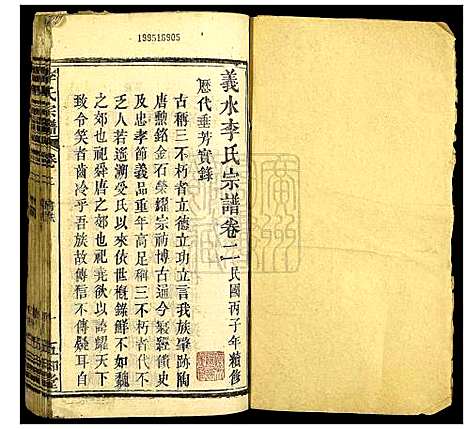 199516905
義水李氏宗譜卷二 民國丙子年續修
歷代垂芳實錄
古稱三不朽者立德立功立言我族肇跡隴
唐勲銘金石榮耀宗祊博古通今氣經饋史
及忠孝節義品重足稱三不朽者代不
乏人若遥溯受氏以來依世槪錄鮮不如魏
之郊也祀舜唐之郊也祀堯欲以誇耀天下
致令笑者齒冷乎吾族故傳信不傳疑耳自
李氏宗譜 卷二